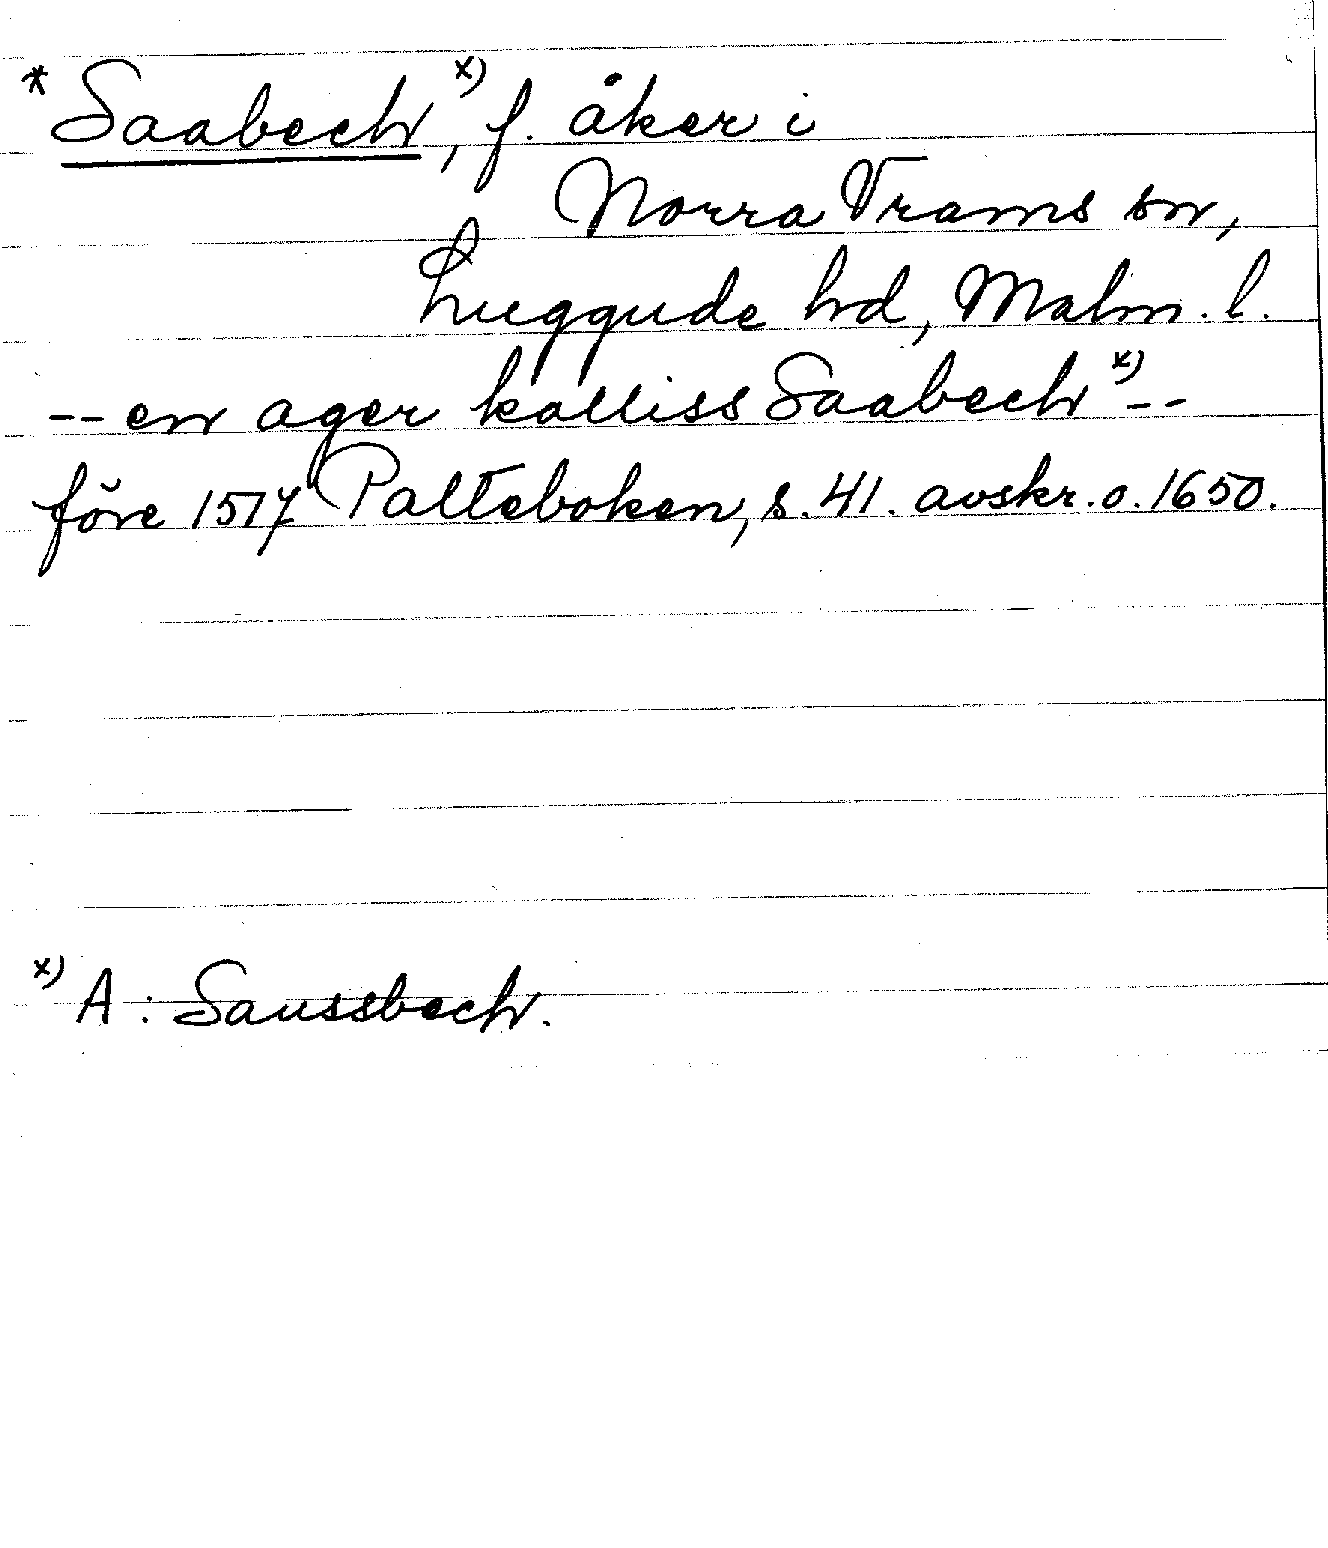 * Saabech x), f. åker i
Norra Vrams sn,
Luggude hd, Malm. l.
-- en ager kalliss Saabech x) --
före 1517 Palteboken, s. 41. avskr. o. 1650.
x) A: Saussbech.